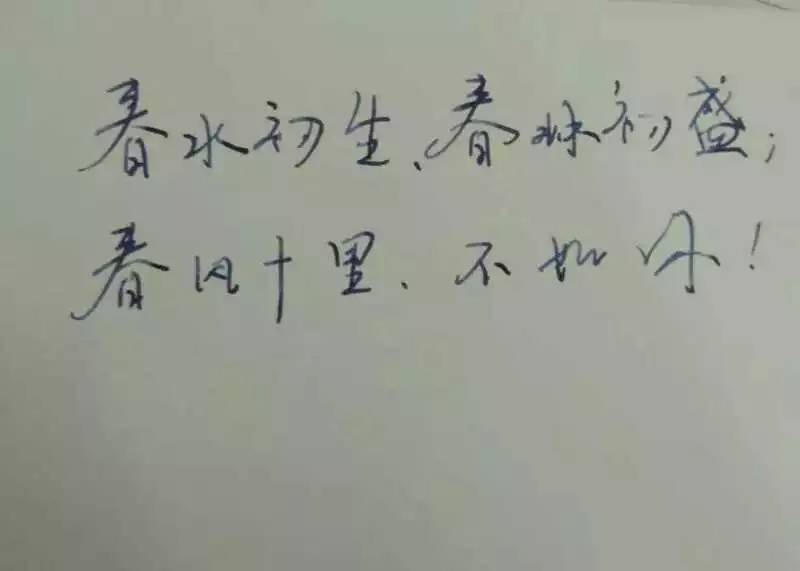 春水初生、春妹初盛；
春风十里、不如你！